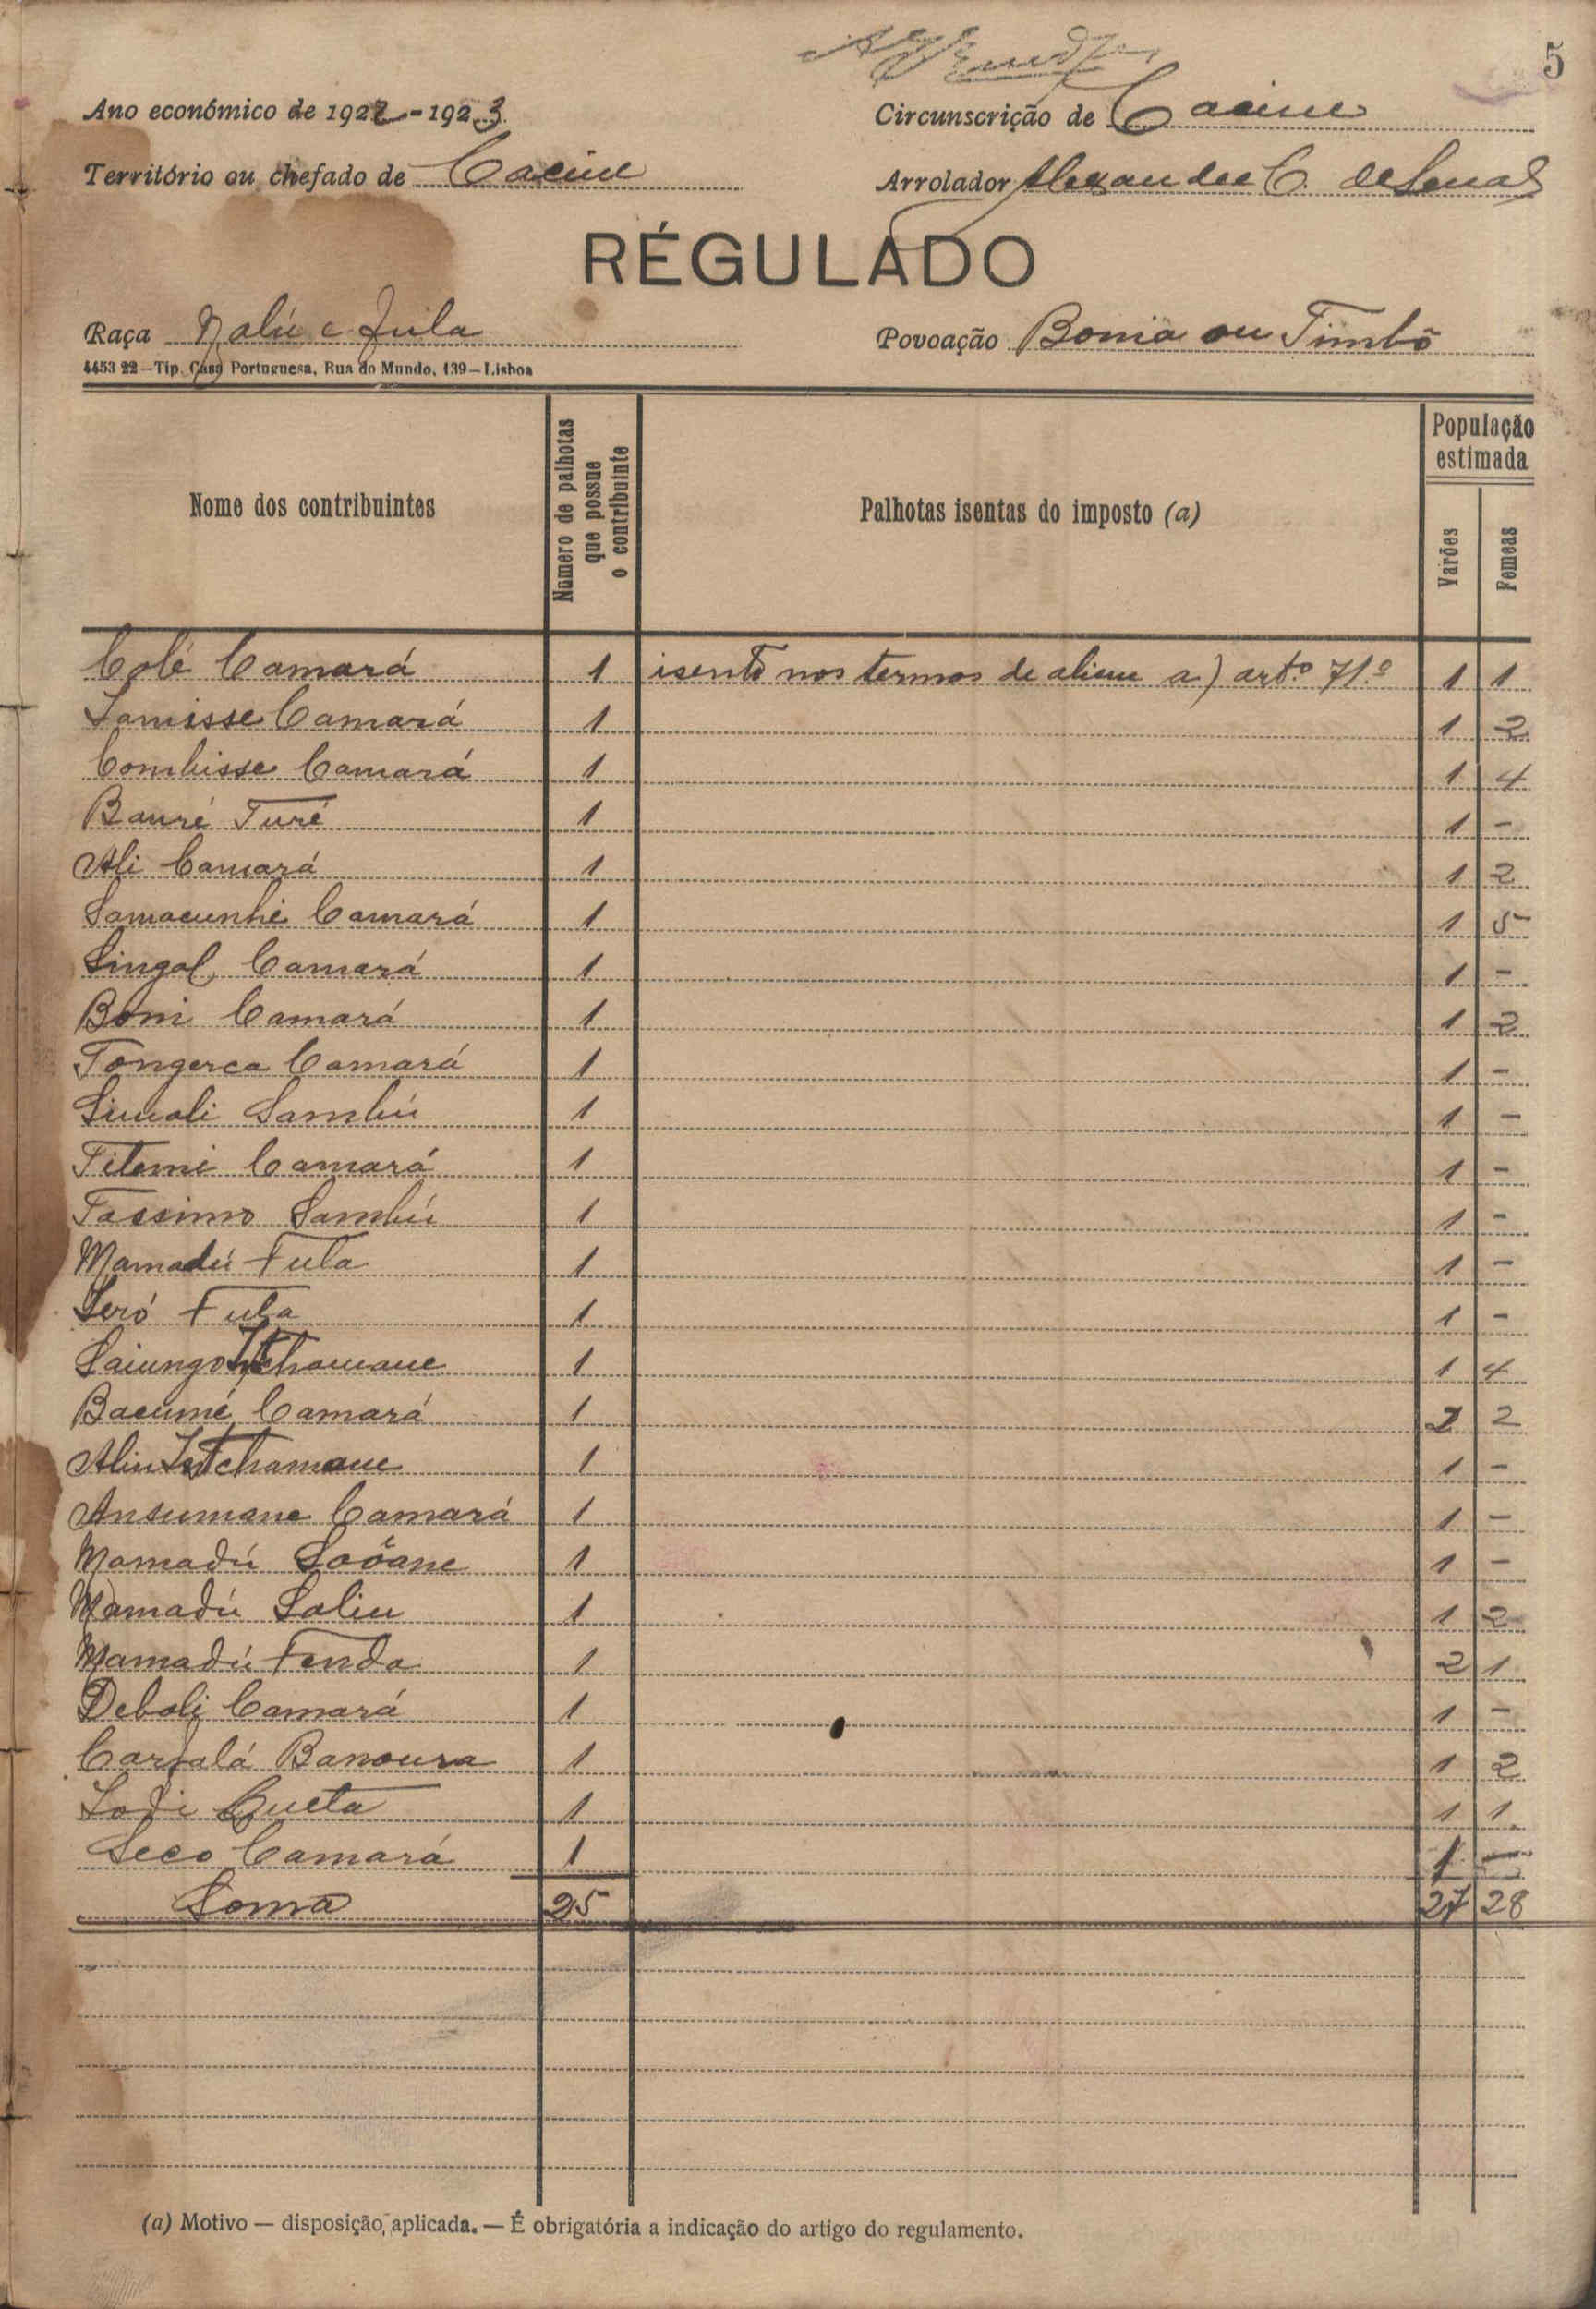 5
Ano económico de 1922-1923. Circunscrição de Cacine
Território ou chefado de Cacine Arrolador Alexandre C. de Sena
RÉGULADO
Raça Nalú e Fula Povoação Bonia ou Timbó
4453 22—Tip. Casa Portuguesa, Rua do Mundo, 139—Lisboa
Nome dos contribuintes Número de palhotas que possue o contribuinte Palhotas isentas do imposto (a) População estimada Varões Femeas
Colé Camará 1 isento nos termos de a) artº 71.º 1 1
Lamisse Camará 1 1 2
Combisse Camará 1 1 4
Bauré Turé 1 1 -
Ali Camará 1 1 2
Samacunhé Camará 1 1 5
Singol Camará 1 1 -
Boni Camará 1 1 2
Tongerca Camará 1 1 -
Simali Sambú 1 1 -
Titemi Camará 1 1 -
Tassimo Sambú 1 1 -
Mamadú Fula 1 1 -
Seró Fula 1 1 -
Saiungo 1 1 4
Bacumé Camará 1 2 2
Aliu 1 1 -
Ansumane Camará 1 1 -
Mamadú 1 1 -
Mamadú Saliu 1 1 2
Mamadú Fenda 1 2 1
Deboli Camará 1 1 -
Carfalá Banoura 1 1 2
Lodi Queta 1 1 1
Seco Camará 1 1 1
Soma 25 27 28
(a) Motivo — disposição, aplicada. — É obrigatória a indicação do artigo do regulamento.